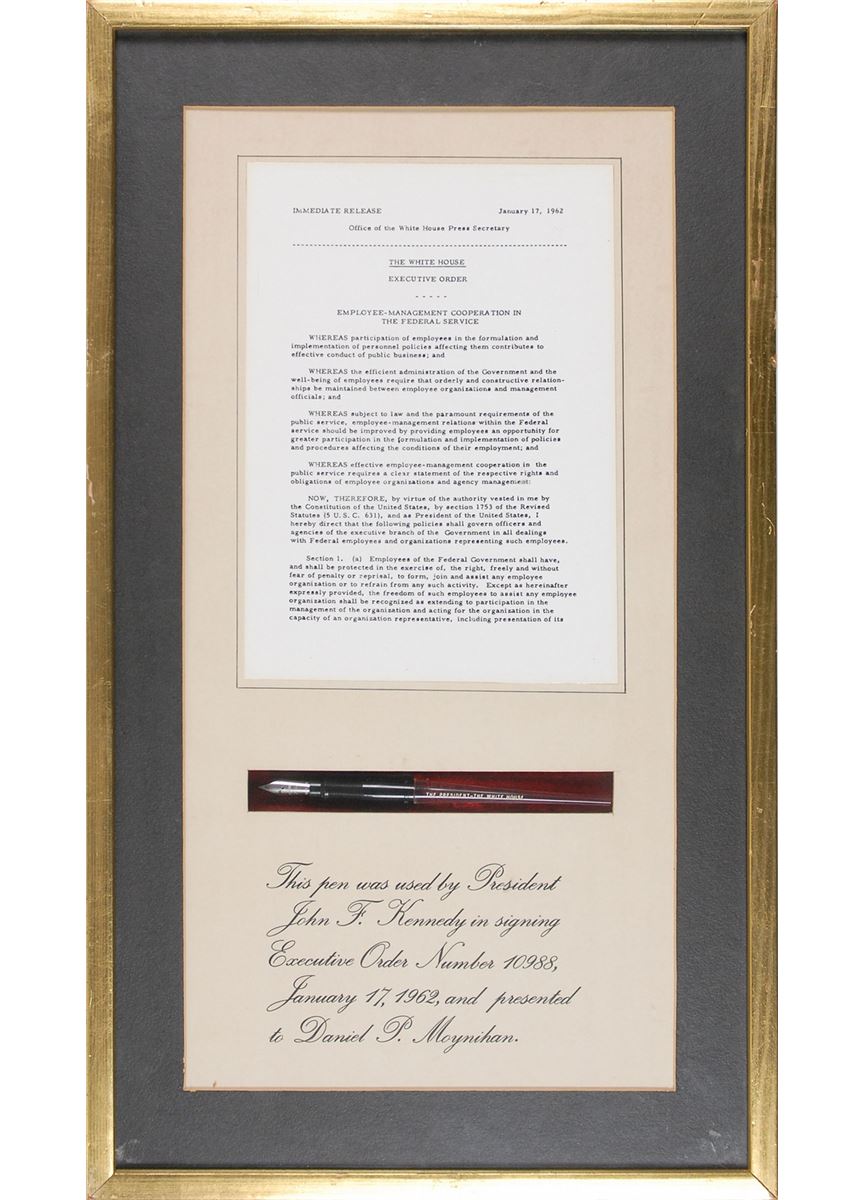 IMMEDIATE RELEASE January 17, 1962
Office of the White House Press Secretary
THE WHITE HOUSE
EXECUTIVE ORDER
- - - - -
EMPLOYEE-MANAGEMENT COOPERATION IN
THE FEDERAL SERVICE
WHEREAS participation of employees in the formulation and
implementation of personnel policies affecting them contributes to
effective conduct of public business; and
WHEREAS the efficient administration of the Government and the
well-being of employees require that orderly and constructive relation-
ships be maintained between employee organizations and management
officials; and
WHEREAS subject to law and the paramount requirements of the
public service, employee-management relations within the Federal
service should be improved by providing employees an opportunity for
greater participation in the formulation and implementation of policies
and procedures affecting the conditions of their employment; and
WHEREAS effective employee-management cooperation in the
public service requires a clear statement of the respective rights and
obligations of employee organizations and agency management:
NOW, THEREFORE, by virtue of the authority vested in me by
the Constitution of the United States, by section 1753 of the Revised
Statutes (5 U.S.C. 631), and as President of the United States, I
hereby direct that the following policies shall govern officers and
agencies of the executive branch of the Government in all dealings
with Federal employees and organizations representing such employees.
Section 1. (a) Employees of the Federal Government shall have,
and shall be protected in the exercise of, the right, freely and without
fear of penalty or reprisal, to form, join and assist any employee
organization or to refrain from any such activity. Except as hereinafter
expressly provided, the freedom of such employees to assist any employee
organization shall be recognized as extending to participation in the
management of the organization and acting for the organization in the
capacity of an organization representative, including presentation of its
THE PRESIDENT-THE WHITE HOUSE
This pen was used by President
John F. Kennedy in signing
Executive Order Number 10988,
January 17, 1962, and presented
to Daniel P. Moynihan.